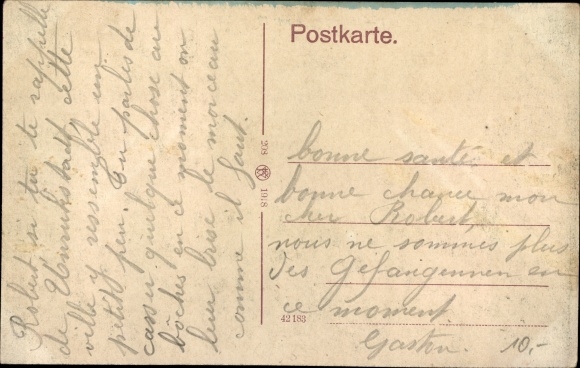 Postkarte.
Robert si tu te rappelle
de Unruhstadt cette
ville y ressemble un
petit peu. Tu parlis de
casser quelque chose au
bôches en ce moment on
leur brise le morceau
comme il faut.
208 1918
42183
bonne santé et
bonne chance mon
cher Robert,
nous ne sommes plus
des Géfangennen en
ce moment.
Gaston.
10,-